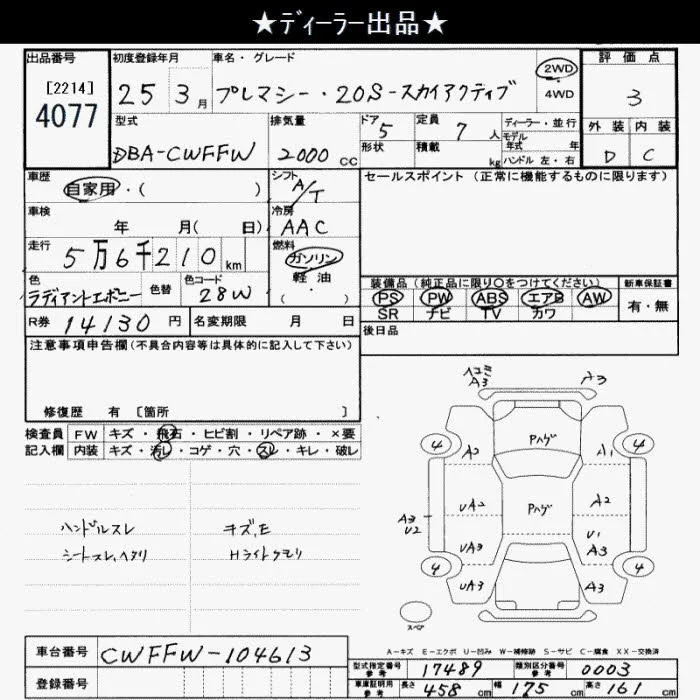 ★ディーラー出品★
出品番号 初度登録年月 車名・グレード 2WD 評価点
[2214] 4077 25 3月 プレマシー・20S-スカイアクティブ 4WD 3
型式 排気量 ドア 5 定員 7人 ディーラー・並行 外装 内装
DBA-CWFFW 2000cc 形状 積載 kg モデル年式 年 ハンドル 左・右 D C
車歴 シフト A/T セールスポイント(正常に機能するものに限ります)
自家用・( )
車検 冷房
年 月( 日) AAC
走行 燃料
5万6千210km ガソリン
色 色替 色コード 軽油 装備品(純正品に限り〇をつけてください) 新車保証書
ラディアントエボニー 28W (・) PS PW ABS エアB AW 有・無
SR ナビ TV カワ
R券 14130円 名変期限 月 日 後日品
注意事項申告欄(不具合内容等は具体的に記入して下さい)
修復歴 有 [箇所 ]
検査員 FW キズ・飛石・ヒビ割・リペア跡・×要
記入欄 内装 キズ・汚レ・コゲ・穴・スレ・キレ・破レ
ハンドルスレ キズ,E
シートスレ,ヘタリ Hライトクモリ
A3 A3
4 Pハゲ 4
A2 A1
UA2 Pハゲ A2
A3 U2
UA3 U1 A3
4 4
UA3 A3
スペア
A-キズ E-エクボ U-凹み W-補修跡 S-サビ C-腐食 XX-交換済
車台番号 CWFFW-104613
登録番号
型式指定番号 参考 17489 類別区分番号 参考 0003
車庫証明用 参考 長さ 458cm 幅 175cm 高さ 161cm